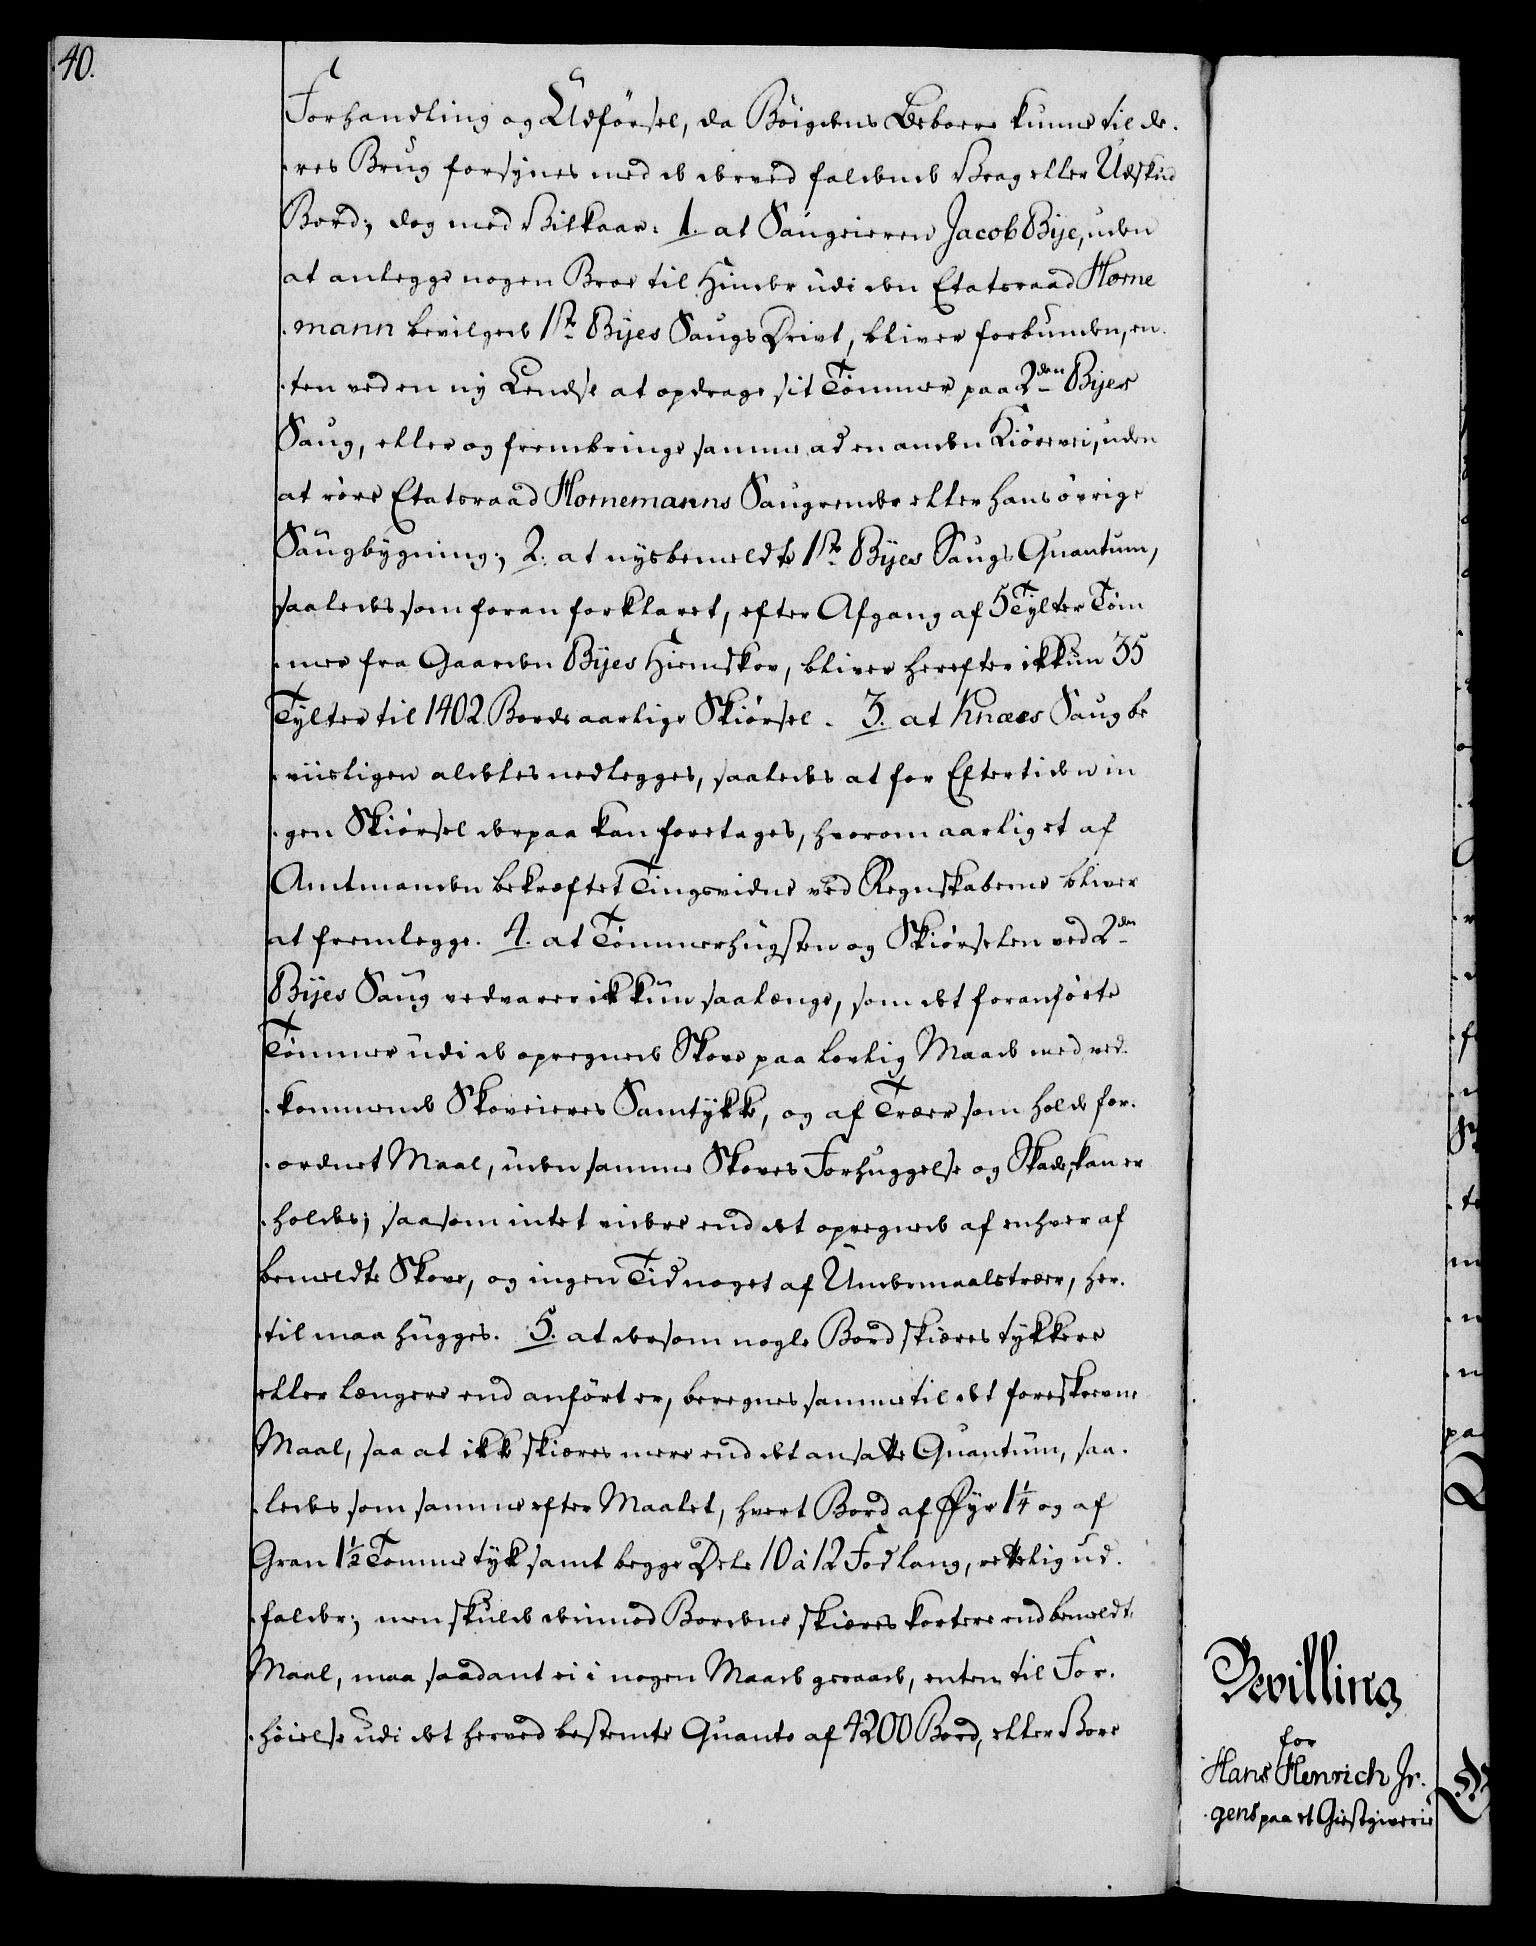 40.
Forhandling og Udførsel, da Bøigdens Beboere kunne til de-
res Brug forsynes med de derved faldende Vrag eller Udskud
Bord; dog med Vilkaar: 1. at Saugeieren Jacob Bye, uden
at anlegge nogen Broe til Hinder udi den Etatsraad Horne
mann bevilgede 1ste Byes Saugs Drivt, bliver forbunden, en-
ten ved en ny Lendse at opdrage sit Tømmer paa 2den Byes
Saug, eller og frembringe samme ad en anden Kiørevei, uden
at røre Etatsraad Hornemanns Saugrende eller hans øvrige
Saugbygning; 2. at nysbemeldte 1ste Byes Saugs Quantum,
saaledes som foran forklaret, efter Afgang af 5 Tylter Tøm
mer fra Gaarden Byes Hiemskov, bliver herefter ikkun 35
Tylter til 1402 Bords aarlige Skiørsel. 3. at Knæes Saug be
viisligen aldeles nedlegges, saaledes at for Eftertiden in
gen Skiørsel derpaa kan foretages, hvorom aarlig et af
Amtmanden bekræftet Tingsvidne ved Regnskaberne bliver
at fremlegge. 4. at Tømmerhugsten og Skiørselen ved 2den
Byes Saug vedvarer ikkun saalænge, som det foranførte
Tømmer udi de opregnede Skove paa lovlig Maade med ved-
kommende Skoveieres Samtykke, og af Træer som holde for-
ordnet Maal, uden samme Skoves Forhuggelse og Skade, kan er
holdes; saasom intet videre end det opregnede af enhver af
bemeldte Skove, og ingen Tid noget af Undermaalstræer, her-
til maa hugges. 5. at dersom nogle Bord skiæres tykkere
eller længere end anført er, beregnes samme til det foreskrevne
Maal, saa at ikke skiæres mere end det ansatte Quantum, saa-
ledes som samme efter Maalet, hvert Bord af Fyr 1¼ og af
Gran 1½ Tomme tyk samt begge Dele 10 à 12 Fod lang, rettelig ud-
falder; men skulde derimod Bordene skiæres kortere end bemeldte
Maal, maa saadant ei i nogen Maade geraade, enten til For-
høielse udi det herved bestemte Quanto af 4200 Bord, eller Vore
Bevilling
for
Hans Henrich Jr-
gens paa et Giestgiverie